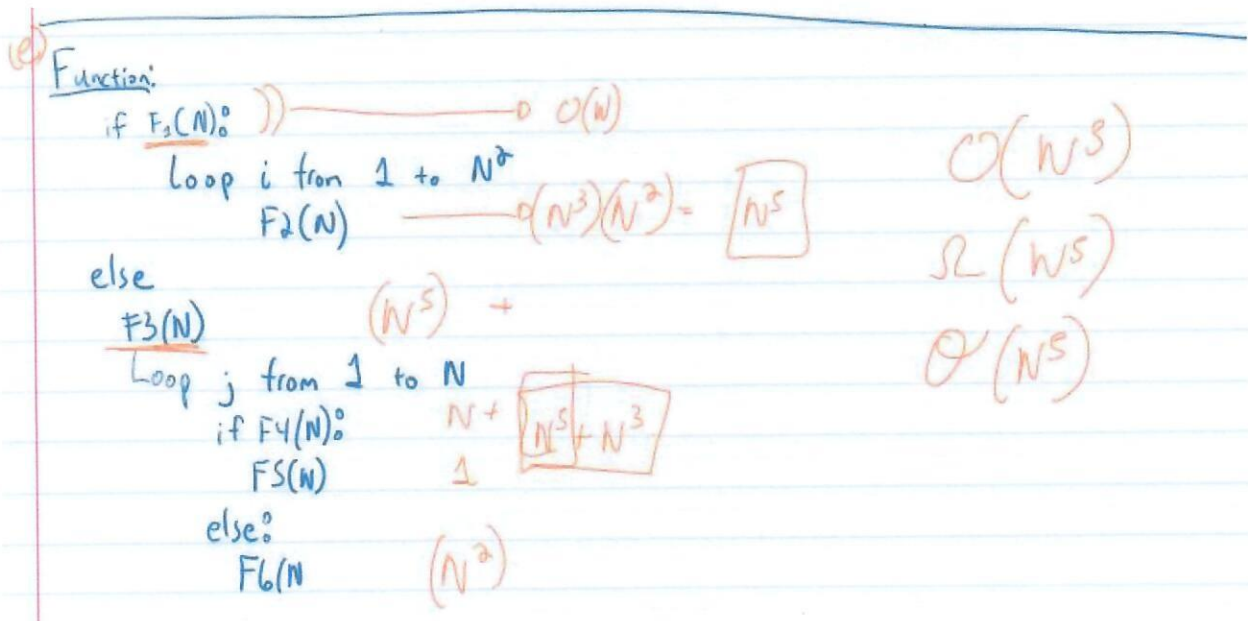 (e)
Function:
if F1(N): )) O(N)
Loop i from 1 to N²
F2(N) (N³)(N²) = N⁵
else
F3(N) (N⁵) +
Loop j from 1 to N
if F4(N): N + N⁵ + N³
F5(N) 1
else:
F6(N (N²)
O(N⁵)
Ω(N⁵)
Θ(N⁵)